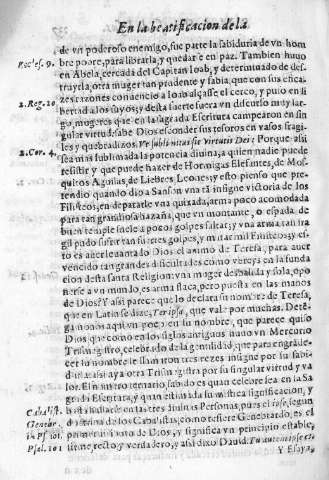 En la beatificacion de la
de vn poderoso enemigo, fue parte la sabiduria de vn hom
Eccles. 9. bre pobre, para librarla, y quedar en paz. Tambien huuo
en Abela, cercada del Capitan Ioab, y determinado de des
truyrla, otra muger tan prudente y sabia, que con sus efica
zes razones conuencio a Ioab alçasse el cerco, y puso en li
2. Reg. 20 bertad a los suyos; y desta suerte fuera vn discurso muy lar-
go, mugeres que en la sagrada Escritura campearon en sin
gular virtud: sabe Dios esconder sus tesoros en vasos fragi-
2. Cor. 4. les y quebradizos. Vt sublimitas sit Virtutis Dei: Porque assi
sea mas sublimada la potencia diuina, a quien nadie puede
resistir y que puede hazer de Hormigas Elefantes, de Mos-
quitos Aguilas, de Liebres Leones; y esto pienso que pre-
tendio quando dio a Sanson vna tã insigne victoria de los
Filisteos, en depararle vna quixada, arma poco acomodada
para tan grandiosa hazaña, que vn montante, o espada de
buen temple
gil pudo sufrir tan fuertes golpes, y matar mil Filisteos; y es-
to es auer leuantado Dios el animo de Teresa, para auer
vencido tan grandes dificultades como vereys en la funda
cion desta santa Religion: vna muger desnuda y sola, opo
nerse a vn mundo, es arma flaca, pero puesta en las manos
de Dios? Y assi parece que lo declara su nombre de Teresa,
que en Latin se dize, Ter ipsa, que vale por muchas. Deté
ganonos aqui vn poco en su nombre, que parece quiso
Dios que como en los siglos antiguos huuo vn Mercurio
Trismegistro, celebrado de la gentilidad, que para engrãde
cer su nombre le llamaron tres vezes insigne por su sabi-
duria: assi aya otra Trismegistra por su singular virtud y va
lor. El numero ternario, sabido es quan celebre sea en la Sa
grada Escritura, y quan estimada su mistica significacion, y
Cabalist. basta hallarse en las tres diuinas Personas, pues el segun
Genebr. doctrina de los Cabalistas, como refiere Genebrardo, es el
in Psal. 101 primer nombre de Dios, y significa vn principio estable,
Psal. 101 tiene recto, y verdadero; y assi dixo Dauid. Tu autem ipse es
Y Esaya,